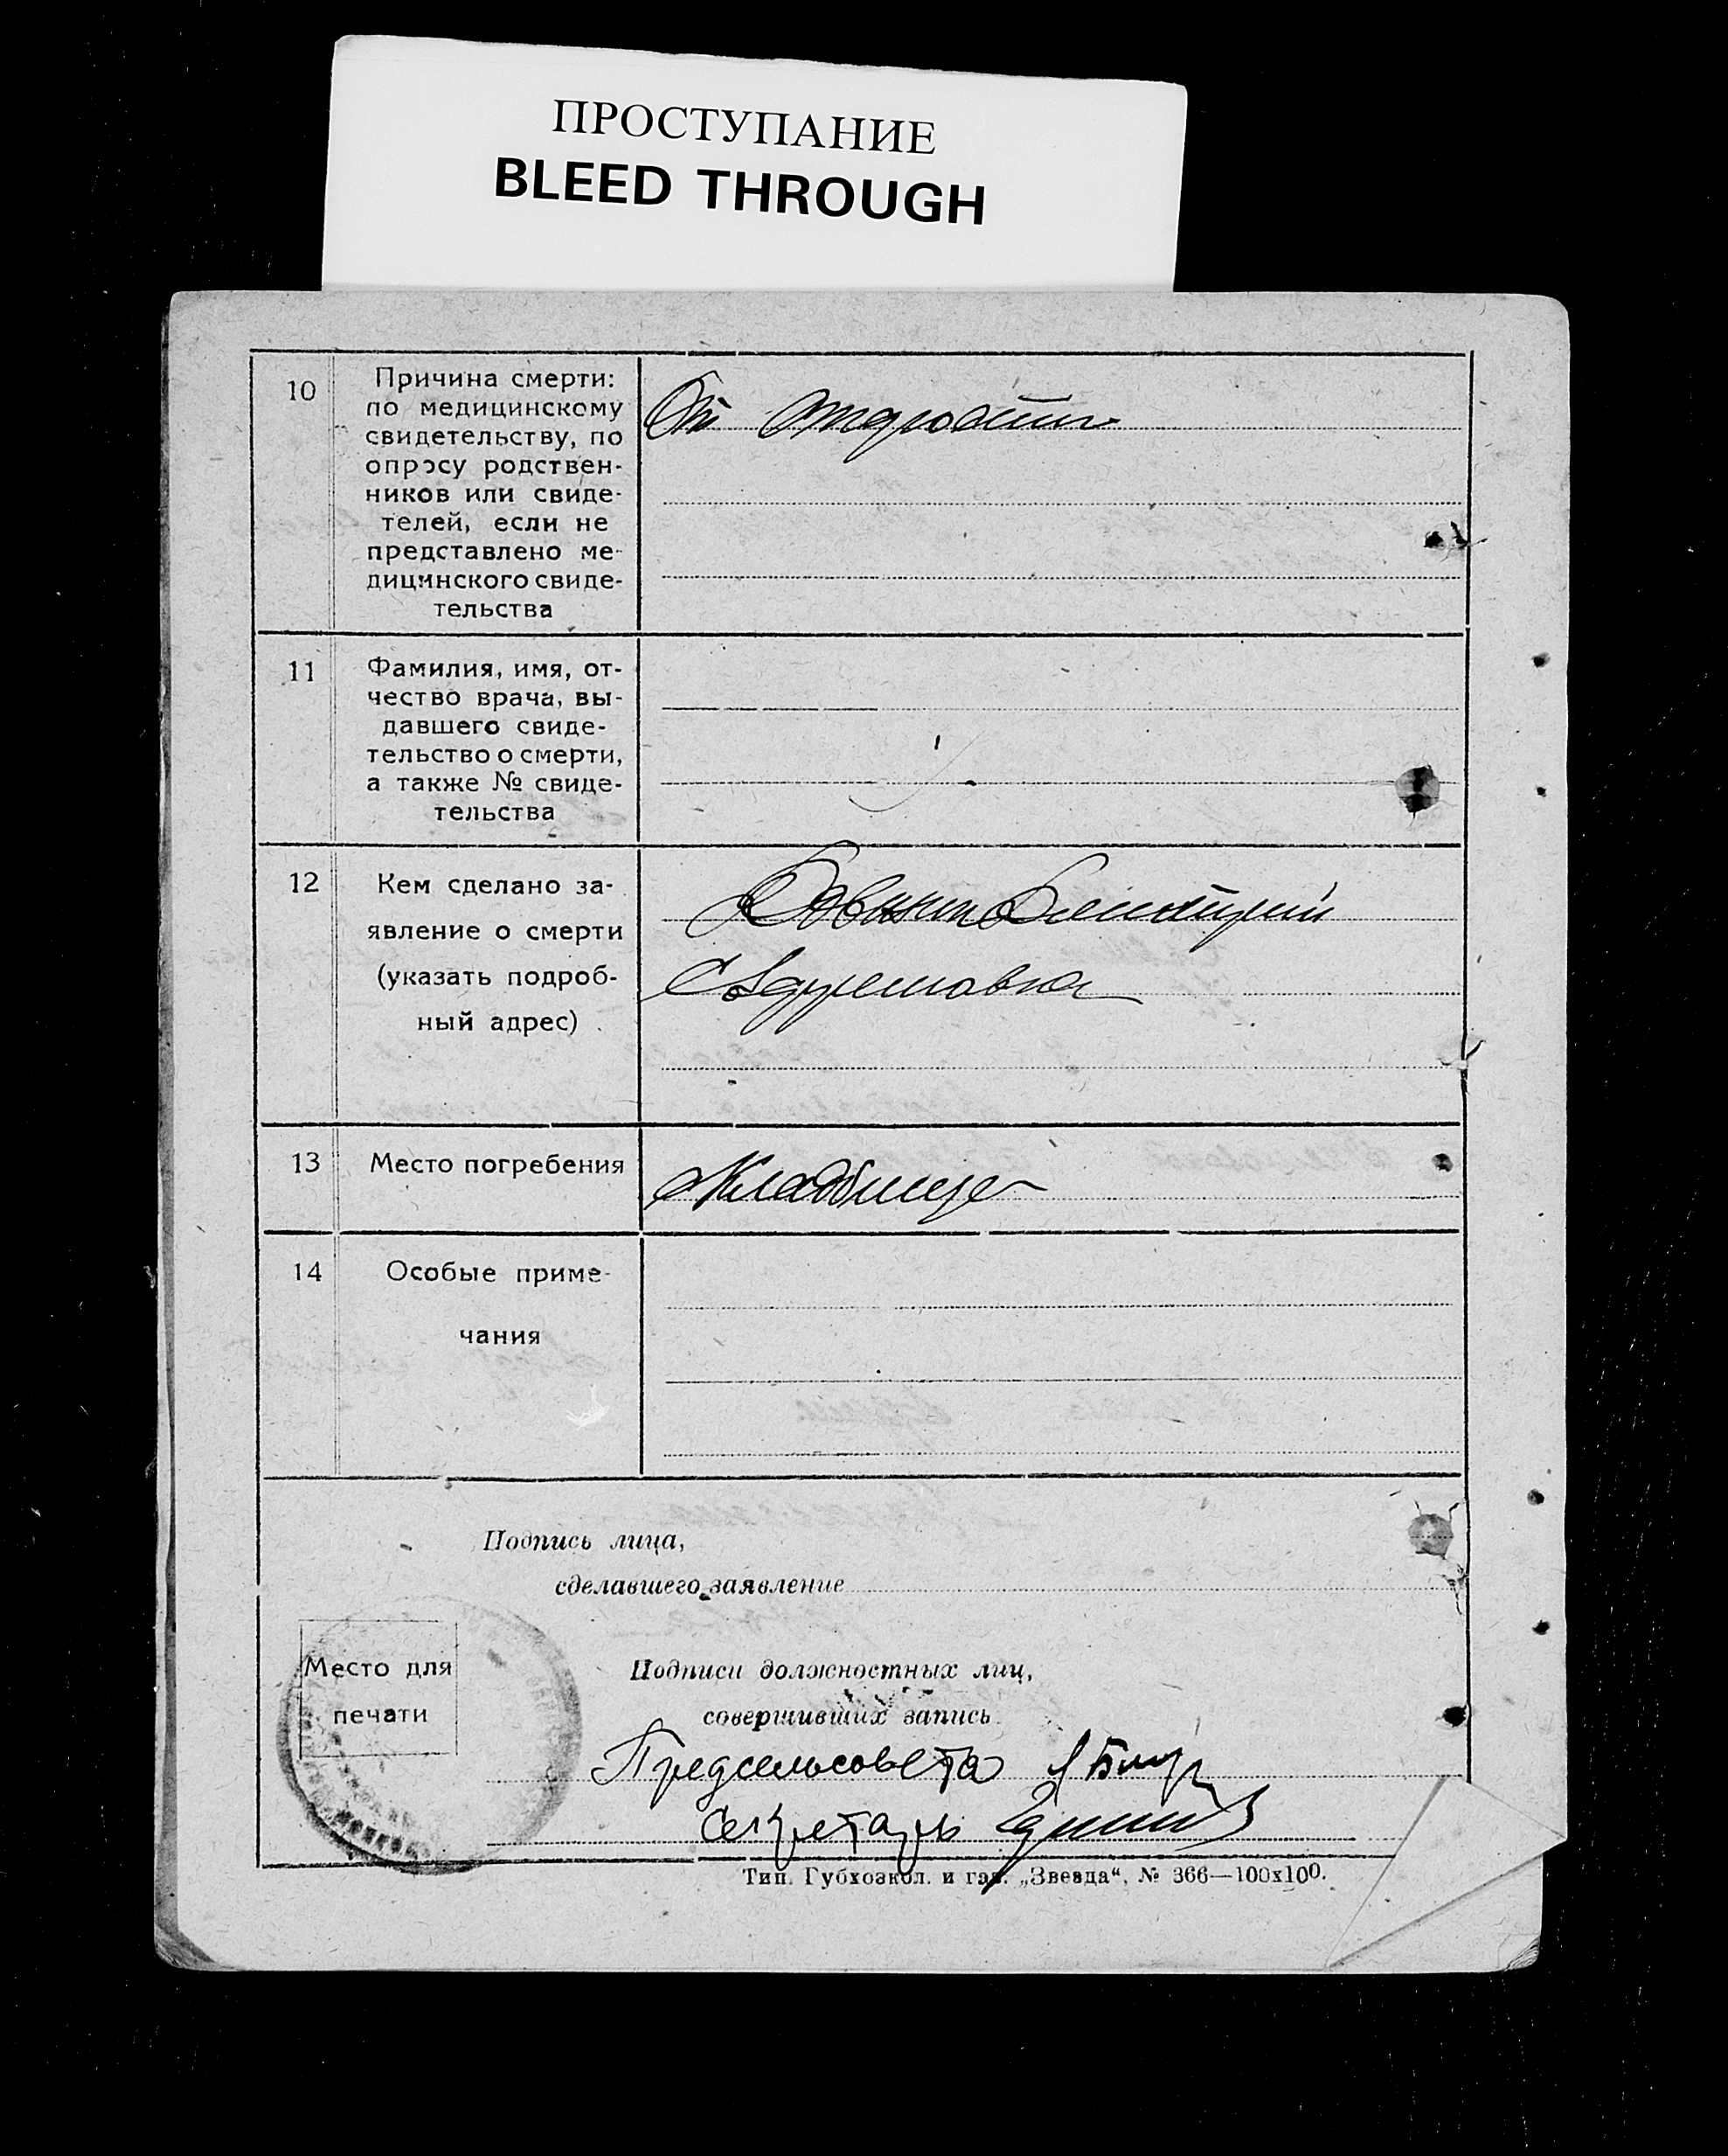 ПРОСТУПАНИЕ
BLEED THROUGH
10
Причина смерти:
по медицинскому
свидетельству, по
опросу родствен-
ников или свиде-
телей, если не
представлено ме-
дицинского свиде-
тельства
От
11
Фамилия, имя, от-
чество врача, вы-
давшего свиде-
тельство о смерти,
а также № свиде-
тельства
12
Кем сделано за-
явление о смерти
(указать подроб-
ный адрес)
13
Место погребения
Кладбище
14
Особые приме-
чания
Подпись лица,
сделавшего заявление
Место для
печати
Подписи должностных лиц,
совершивших запись
Предсельсовета
Секретарь
Тип. Губхозкол. и газ. „Звезда“, № 366—100х100.